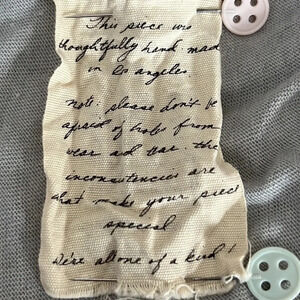 This piece was
thoughtfully hand made
in los angeles
note: please don't be
afraid of holes from
wear and tear. the
inconsistencies are
what make your piece
special
We're all one of a kind!